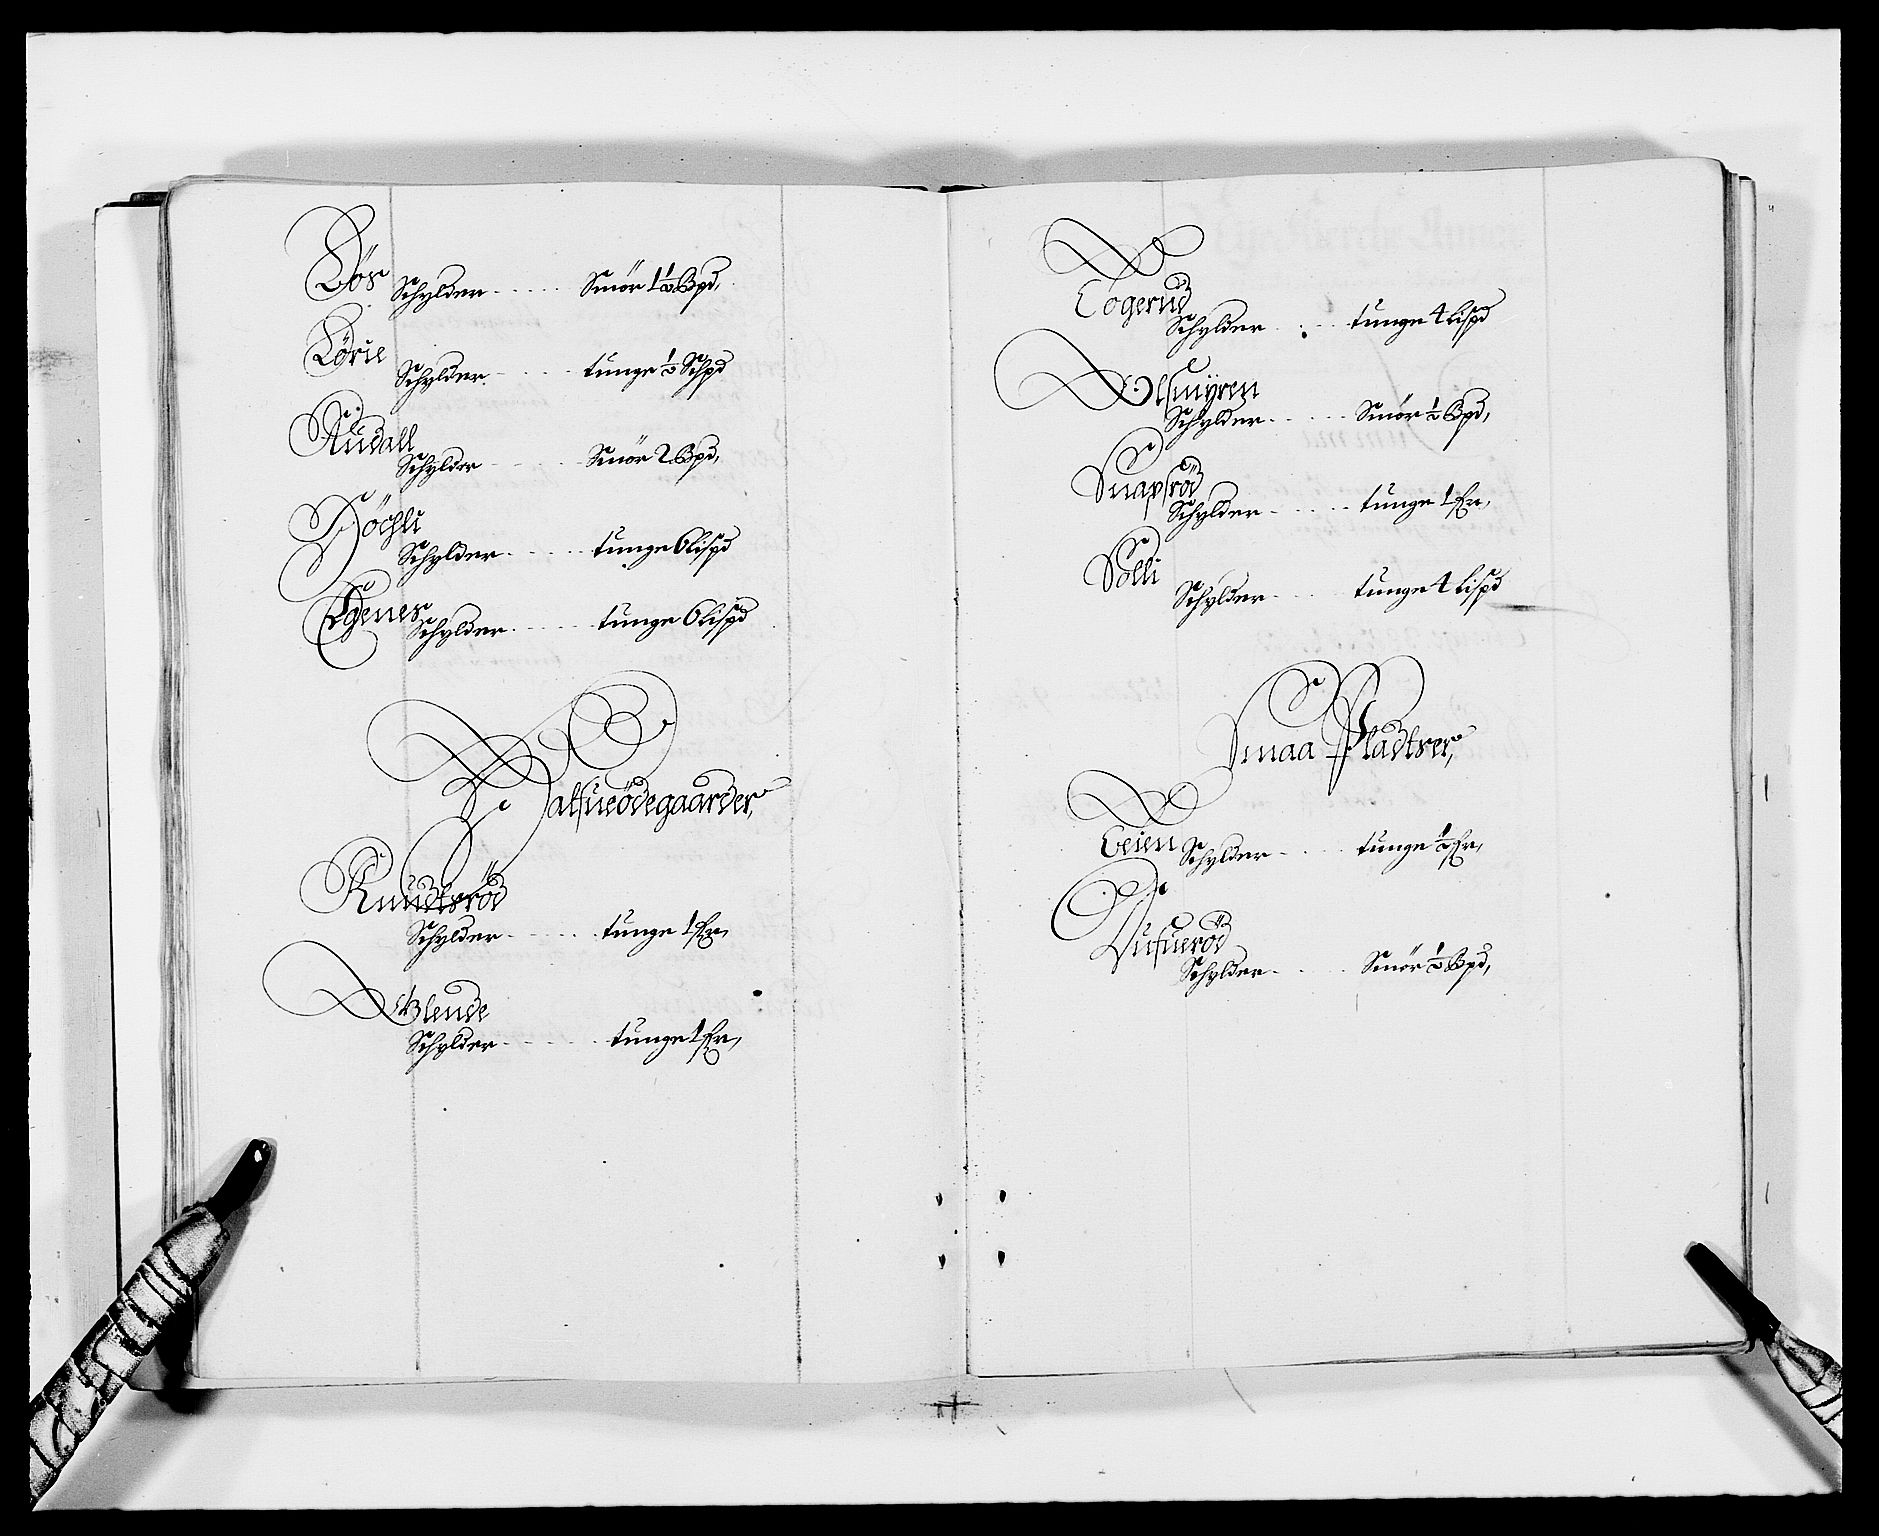 Løs
Schylder ..... Smör 1½ Bpd,
Lørie
Schylder ..... tunge ½ Schpd
Rüdall
Schylder ..... Smör 2 Bpd,
Höchli
Schylder ..... tunge 6 Lispd
Egenes
Schylder ..... tunge 6 Lispd
Halfueödegaarder,
Knudtsröd
Schylder ..... tunge 1 Fr,
Blende
Schylder ..... tunge 1 Fr,
Togerud
Schylder ..... tunge 4 Lispd
Olsmyren
Schylder ..... Smör ½ Bpd,
Snapsröd
Schylder ..... tunge 1 Fr,
Solli
Schylder ..... tunge 4 Lispd
Smaa Pladtser,
Teien
Schylder ..... tunge ½ Fr,
Schylder ..... Smör ½ Bpd,